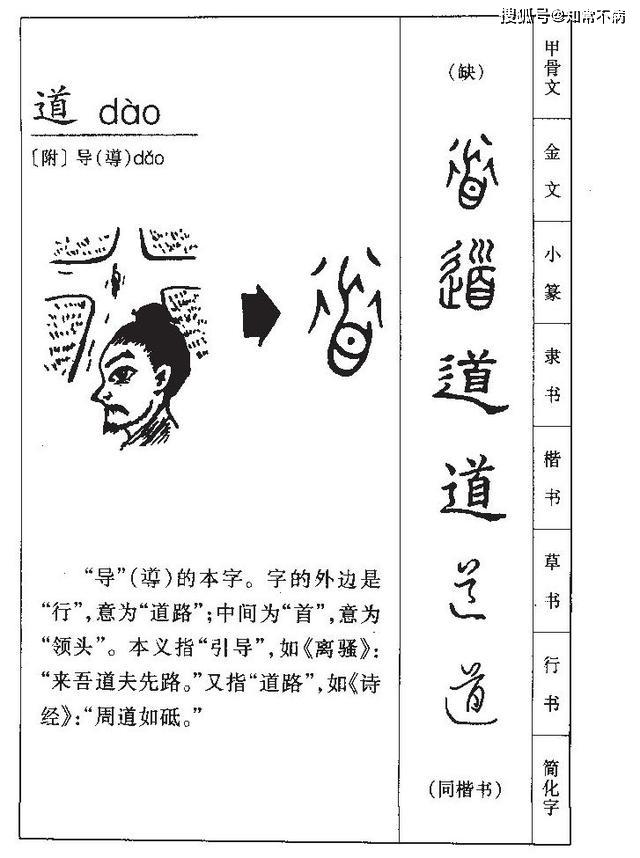 搜狐号@知常不病
道 dào
〔附〕导(導)dǎo
“导”(導)的本字。字的外边是
“行”,意为“道路”;中间为“首”,意为
“领头”。本义指“引导”,如《离骚》:
“来吾道夫先路。”又指“道路”,如《诗
经》:“周道如砥。”
(缺)
甲骨文
道
金文
道
小篆
道
隶书
道
楷书
道
草书
道
行书
(同楷书)
简化字